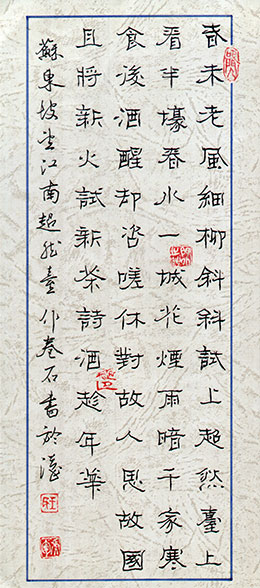 春未老風細柳斜斜試上超然臺上
看半壕春水一城花煙雨暗千家寒
食後酒醒却咨嗟休對故人思故國
且將新火試新茶詩酒趁年華
蘇東坡望江南超然臺作卷石書於